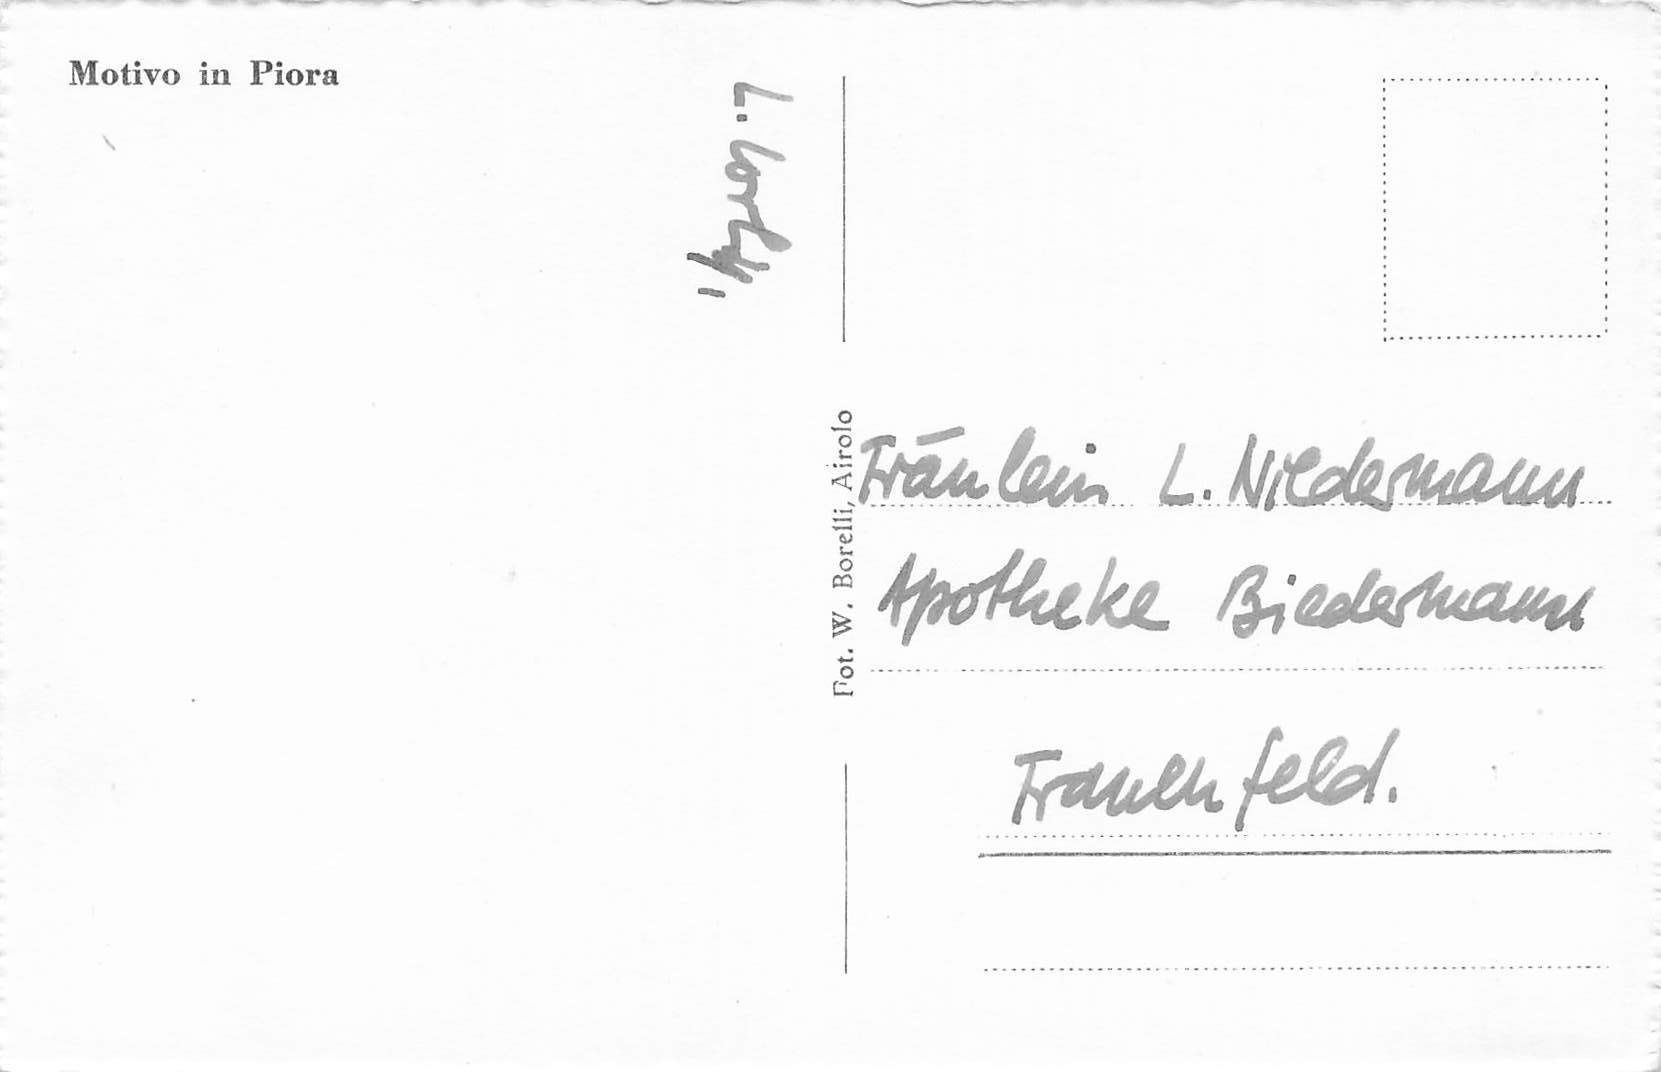 Motivo in Piora
L.
Fot. W. Borelli, Airolo
Fräulein L. Niedermann
Apotheke Biedermann
Frauenfeld.